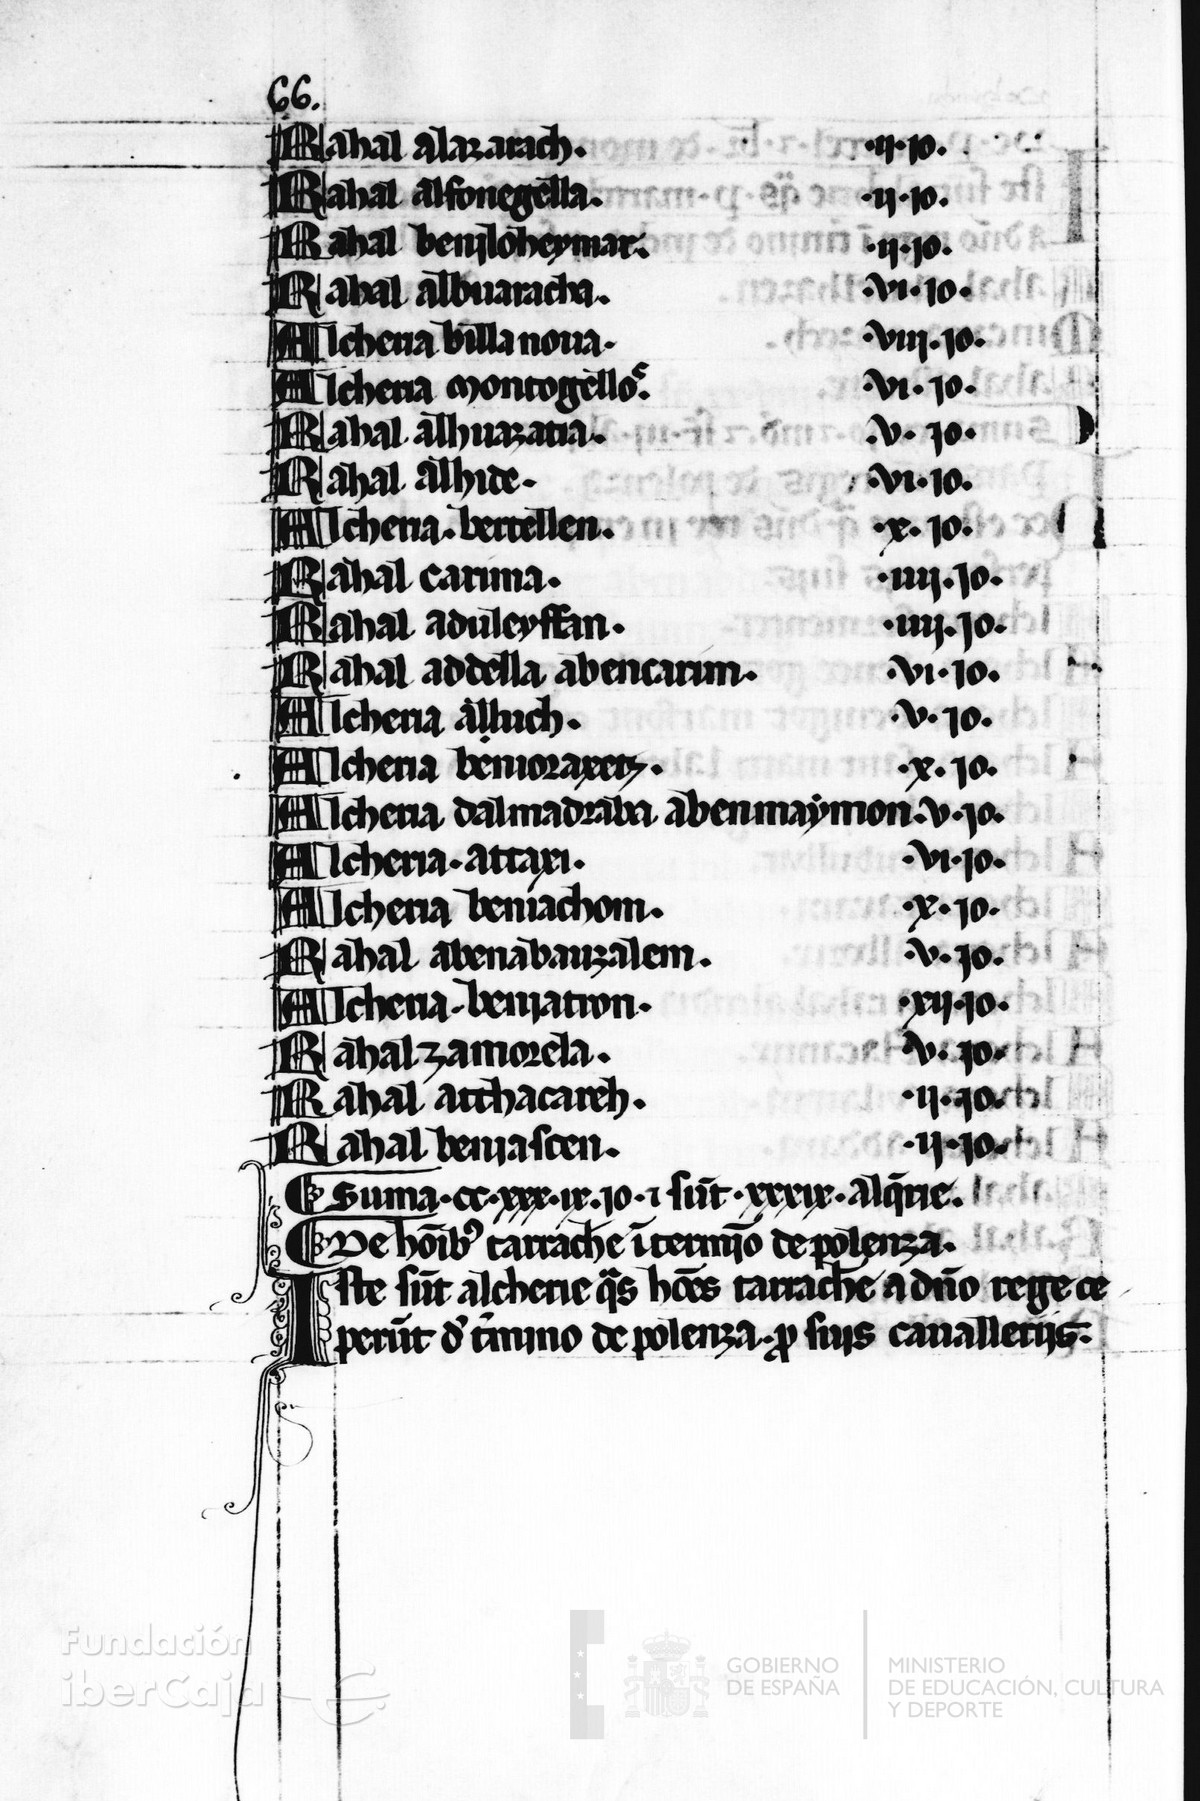 66.
Rahal alazarach. .ii. io.
Rahal alfonegella. .ii. io.
Rahal beniloheymar. .ii. io.
Rahal albuaracha. .vi. io.
Alcheria villa noua. .viii. io.
Alcheria montogellos. .vi. io.
Rahal alhuazaria. .v. io.
Rahal alhite. .vi. io.
Alcheria. bertellen. .x. io.
Rahal carima. .iiii. io.
Rahal aduleyffan. .iiii. io.
Rahal abdella abencarim. .vi. io.
Alcheria alluch. .v. io.
Alcheria benioraxetz. .x. io.
Alcheria dalmadraba abenmaymon. v. io.
Alcheria. attaxi. .vi. io.
Alcheria beniachom. .x. io.
Rahal abenabauzalem. .v. io.
Alcheria. beniatron. .xii. io.
Rahal zamorela. .v. io.
Rahal atthacareh. .ii. io.
Rahal beniascen. .ii. io.
Suma. cc. xxx. ix. io. ⁊ sūt. xxxix. alq̄rie.
De hoībꝰ tarrache ī termīo de polenza.
Iste sūt alcherie q̄s hōēs tarrache a dño rege ce
perūt d' t̄mino de polenza. ꝓ suis cauallerijs.
Fundación
iberCaja
GOBIERNO
DE ESPAÑA
MINISTERIO
DE EDUCACIÓN, CULTURA
Y DEPORTE